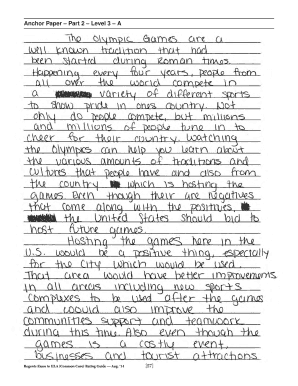 Anchor Paper – Part 2 – Level 3 – A
The Olympic Games are a
well known tradition that had
been started during Roman times.
Happening every four years, people from
all over the world compete in
a variety of different sports
to show pride in ones country. Not
only do people compete, but millions
and millions of people tune in to
cheer for their country. Watching
the Olympics can help you learn about
the various amounts of traditions and
cultures that people have and also from
the country which is hosting the
games. Even though their are negatives
that come along with the positives,
the United States should bid to
host future games.
Hosting the games here in the
U.S. would be a positive thing, especially
for the city which would be used.
That area would have better improvements
in all areas including new sports
complexes to be used after the games
and would also improve the
communities support and teamwork
during this time. Also even though the
games is a costly event,
businesses and tourist attractions
Regents Exam in ELA (Common Core) Rating Guide — Aug. '14
[37]